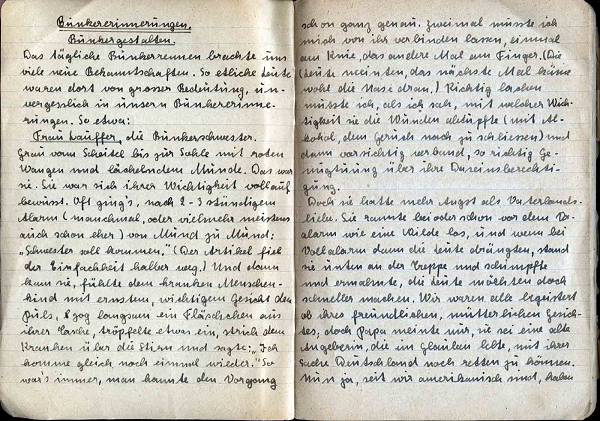 Bunkererinnerungen.
Bunkergestalten.
Das tägliche Bunkerrennen brachte uns
viele neue Bekanntschaften. So etliche Leute
waren dort von grosser Bedeutung, un-
vergesslich in unsern Bunkererinne-
rungen. So etwa:
Frau Lauffer, die Bunkerschwester.
Grau vom Scheitel bis zur Sohle mit roten
Wangen und lächelndem Munde. Das war
sie. Sie war sich ihrer Wichtigkeit vollauf
bewusst. Oft ging's, nach 2-3 stündigem
Alarm (manchmal, oder vielmehr meistens
auch schon eher) von Mund zu Mund:
"Schwester soll kommen." (Der Artikel fiel
der Einfachheit halber weg.) Und dann
kam sie, fühlte dem kranken Menschen-
kind mit ernstem, wichtigem Gesicht den
Puls, zog langsam ein Fläschchen aus
ihrer Tasche, tröpfelte etwas ein, strich dem
Kranken über die Stirn und sagte: "Ich
komme gleich noch einmal wieder." So
war's immer, man kannte den Vorgang
schon ganz genau. Zweimal musste ich
mich von ihr verbinden lassen, einmal
am Knie, das andere Mal am Finger. (Die
Leute meinten, das nächste Mal käme
wohl die Nase dran.) Richtig lachen
musste ich, als ich sah, mit welcher Wich-
tigkeit sie die Wunden abtupfte (mit Al-
kohol, dem Geruch nach zu schliessen) und
dann vorsichtig verband, so richtig Ge-
nugtuung über ihre Daseinsberechti-
gung.
Doch sie hatte mehr Angst als Vaterlands-
liebe. Sie rannte bei oder schon vor dem Vo-
alarm wie eine Wilde los, und wenn bei
Vollalarm dann die Leute drängten, stand
sie unten an der Treppe und schimpfte
und ermahnte, die Leute möchten doch
schneller machen. Wir waren alle begeistert
ob ihres freundlichen, mütterlichen Gesich-
tes, doch Papa meinte nur, sie sei eine alte
Angeberin, die im Glauben lebte, mit ihrer
Sache Deutschland noch retten zu können.
Nun ja, seit wir amerikanisch sind, haben